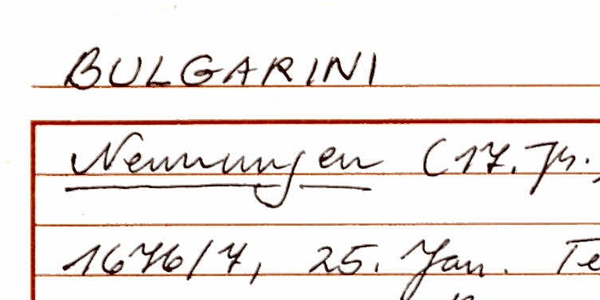 BULGARINI
Nennungen (17. Jh.
1676/7, 25. Jan. Te